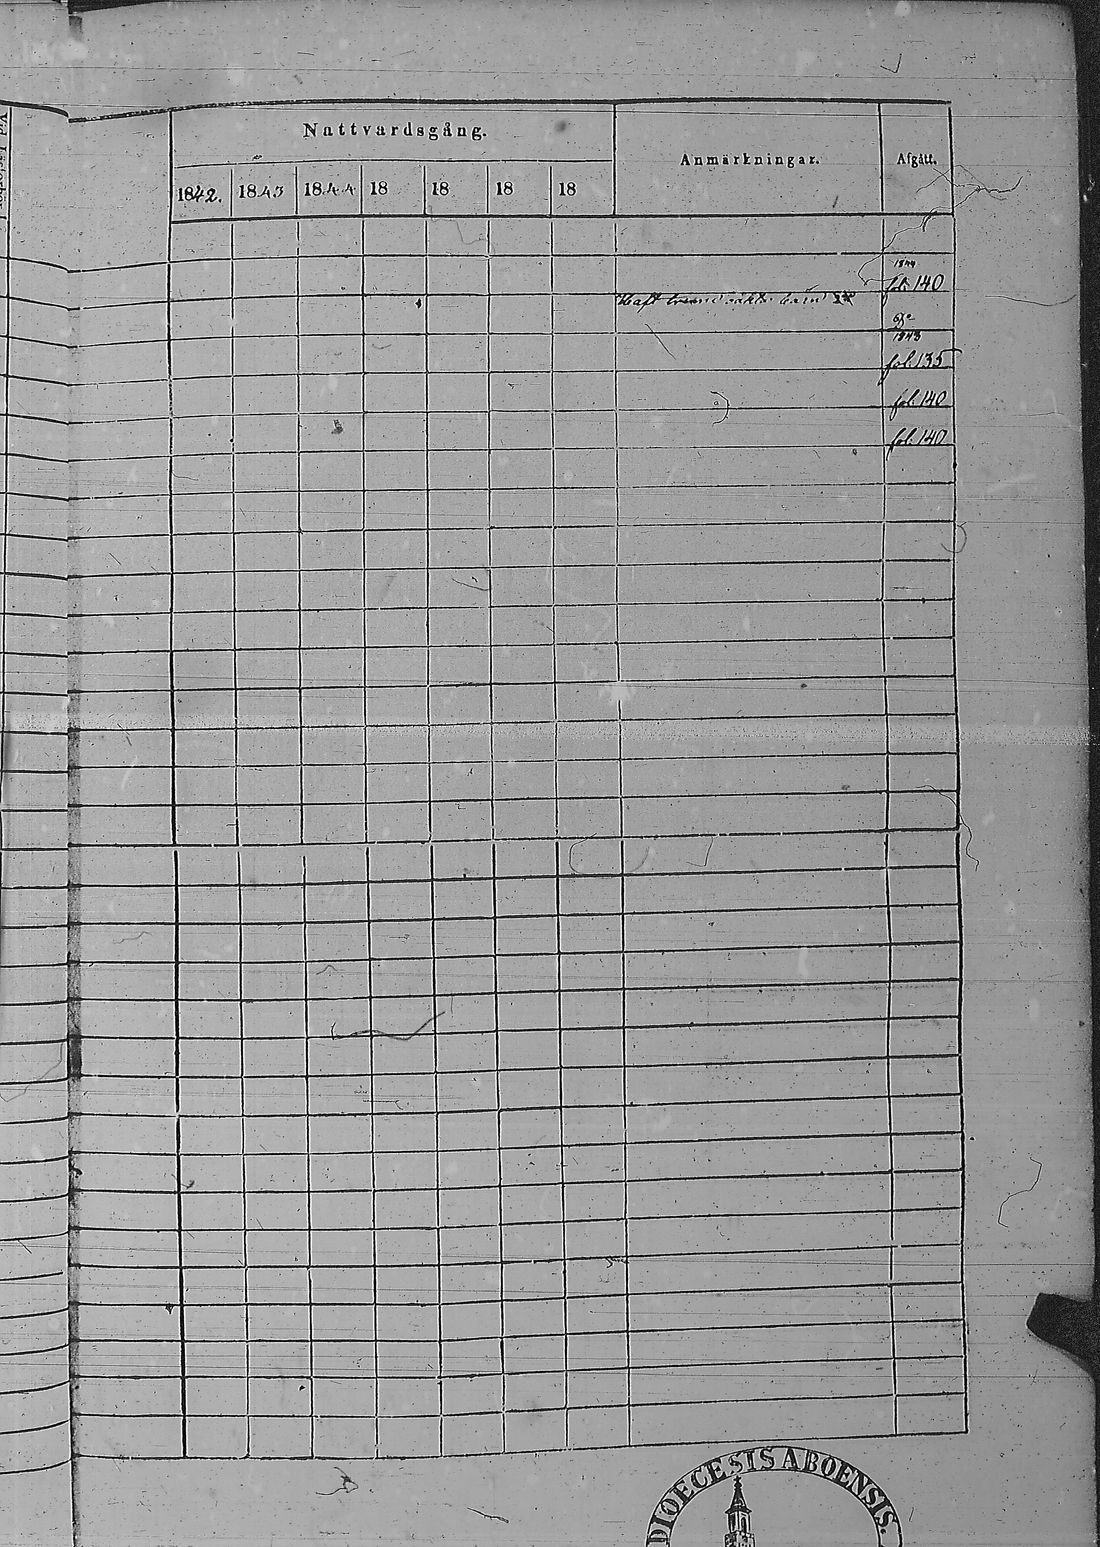 Nattvardsgång.
Anmärkningar.
Afgått.
1842. 1843 1844 18 18 18 18
1844
fol. 140
Haft oäkta barn
1843
fol. 135
fol. 140
fol. 140
DIOECESIS ABOENSIS.